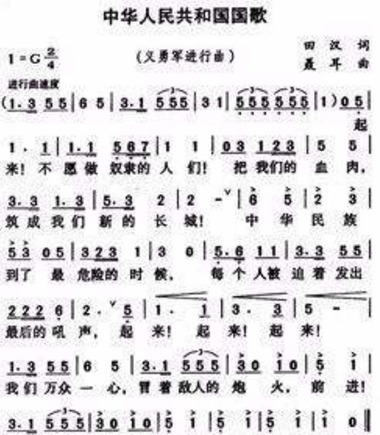 中华人民共和国国歌
1=G 2/4
(义勇军进行曲)
田汉 词
聂耳 曲
进行曲速度
(1.3 5 5 | 6 5 | 3.1 5 5 5 | 3 1 | 5 5 5 5 5 5 | 1) 0 5 |
起
1. 1 | 1.1 5 6 7 | 1 1 | 0 3 1 2 3 | 5 5 |
来!不愿做奴隶的人们!把我们的血肉,
3.3 1.3 | 5.3 2 | 2 - | 6 5 | 2 3 |
筑成我们新的长城!中华民族
5 3 0 5 | 3 2 3 1 | 3 0 | 5.6 1 1 | 3.3 5 5 |
到了最危险的时候,每个人被迫着发出
2 2 2 6 | 2. 5 | 1. 1 | 3. 3 | 5 - |
最后的吼声,起来!起来!起来!
1.3 5 5 | 6 5 | 3.1 5 5 5 | 3 0 1 0 | 5 1 |
我们万众一心,冒着敌人的炮火,前进!
3.1 5 5 5 | 3 0 1 0 | 5 1 | 5 1 | 5 1 | 1 0 ‖